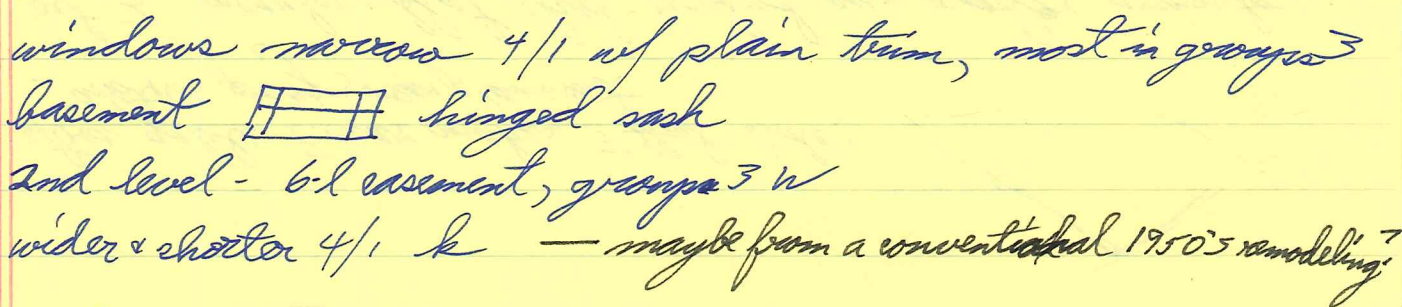 windows narrow 4/1 w/ plain trim, most in groups 3
basement hinged sash
2nd level - 6-l casement, groups 3 W
wider & shorter 4/1 k — maybe from a conventional 1950's remodeling?